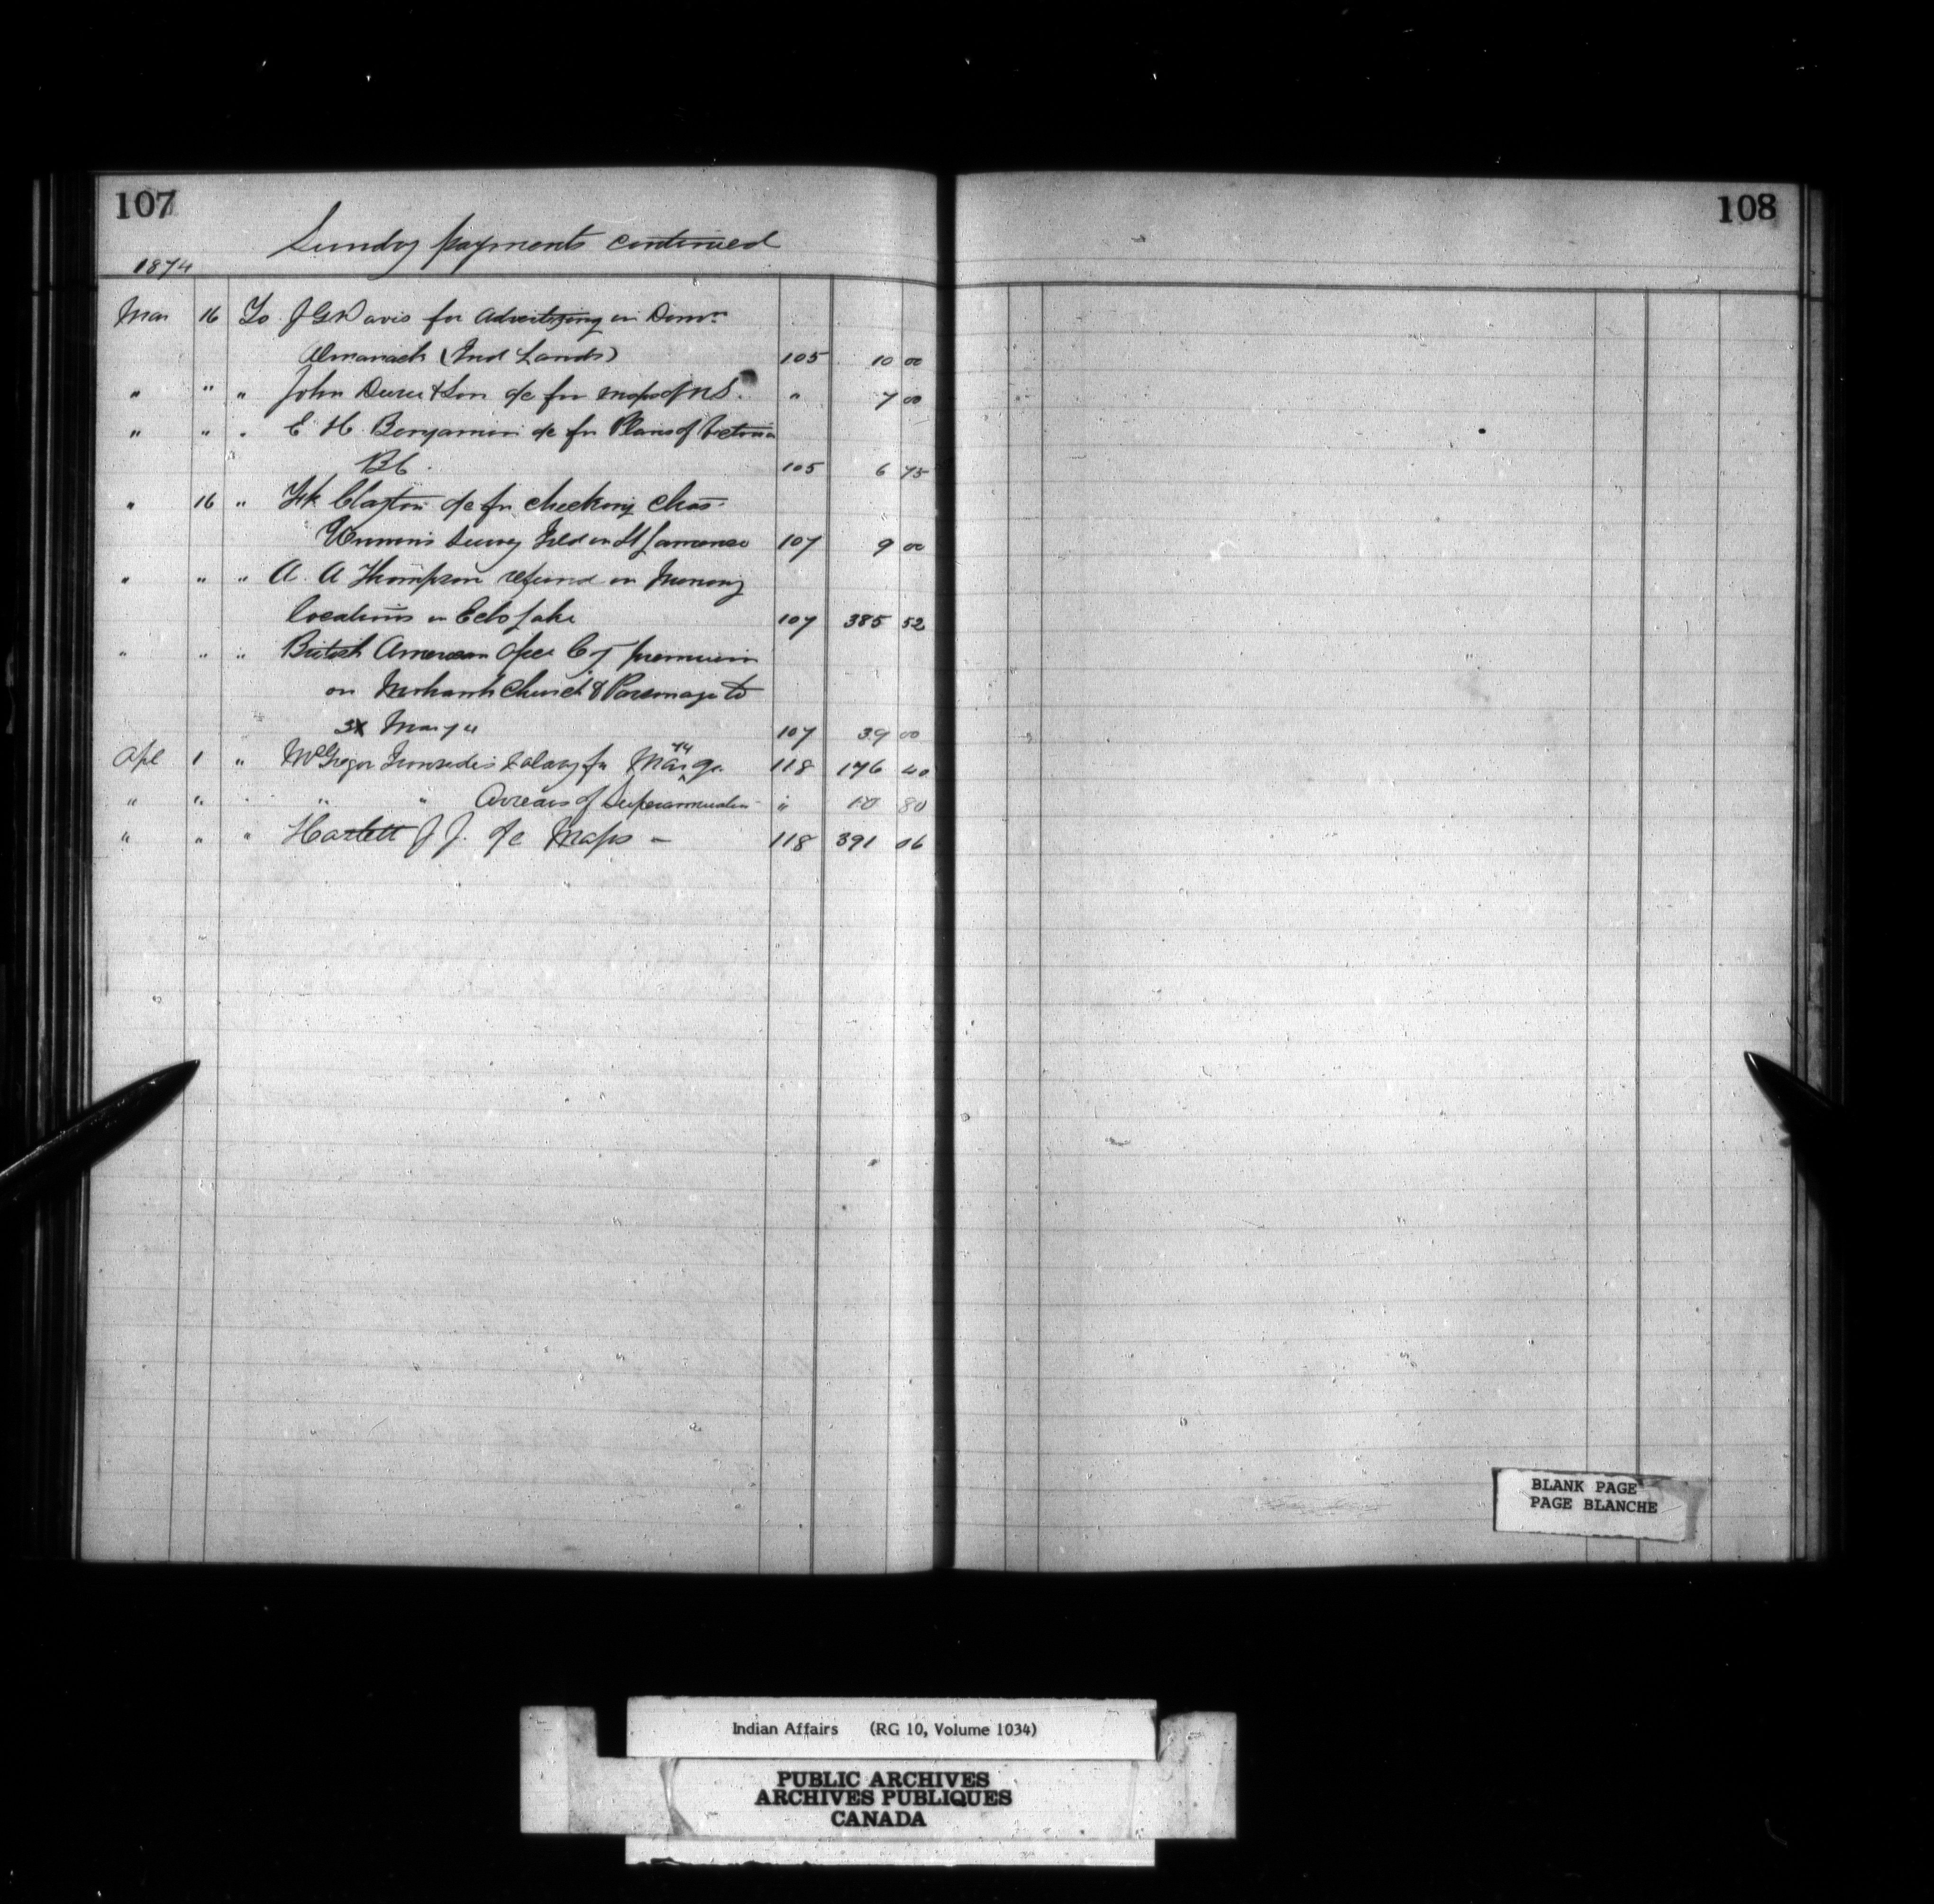 107
Sundry payments continued
1874
Mar 16 To J G Davis for Advertizing in Domn
Almanack (Ind Lands) 105 10 00
" " " John Durie & Son a/c for maps of N S. " 7 00
" " " E. H. Benjamin a/c for Plans of Victoria
B C. 105 6 75
" 16 " Fk Clayton a/c for checking Chas
Survey Field 107 9 00
" " " A. A Thompson refund on Mining
locations on Echo Lake 107 385 52
" " " British American Assce Coy premium
on Mohawk Church & Parsonage to
Mar 74 107 39 00
Apl 1 " McGregor Ironside's Salary for Mar 74 qr. 118 176 40
" " " " " Arrears of Superannuation " 10 80
" " " Hartlett J J. a/c Maps — 118 391 06
108
BLANK PAGE
PAGE BLANCHE
Indian Affairs (RG 10, Volume 1034)
PUBLIC ARCHIVES
ARCHIVES PUBLIQUES
CANADA